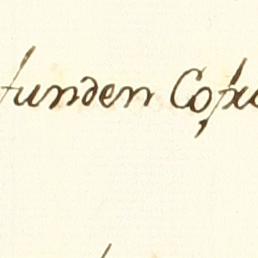 funden Copu